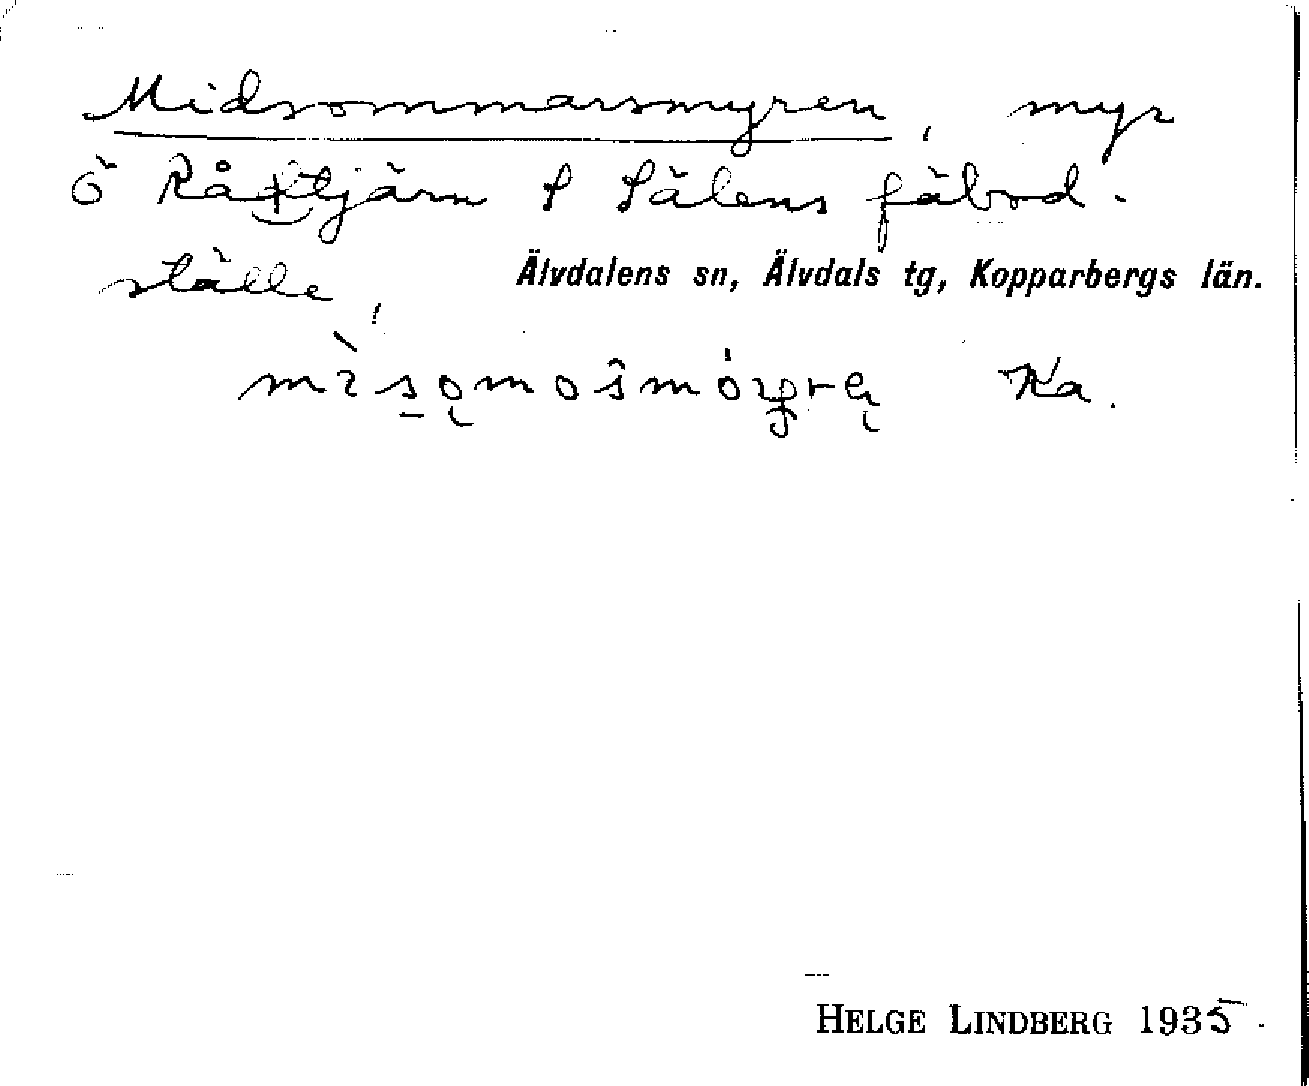 Midsommarsmyren, myr
Ö S Sälens fäbod-
ställe,
Älvdalens sn, Älvdals tg, Kopparbergs län.
Ka.
HELGE LINDBERG 1935.